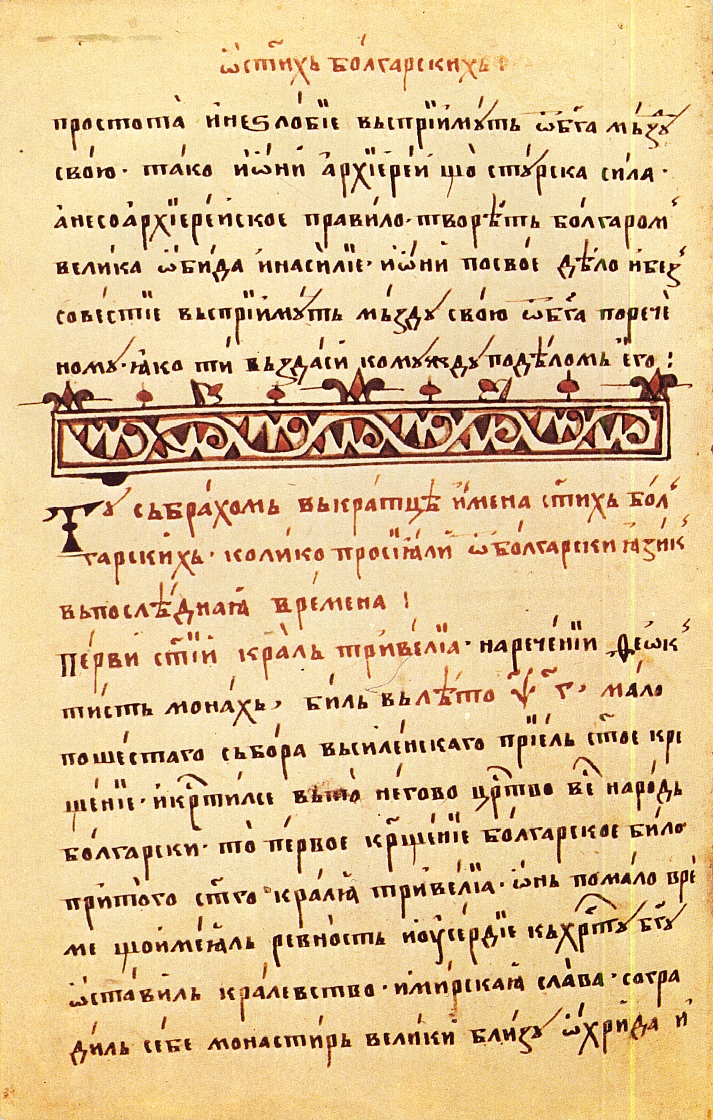 ѡ҆ст҃ихъ бо́лгарскихъ:
простота̀ и҆неѕло́бїе въспрїи́мꙋть ѿбг҃а мъздꙋ̀
свою̀· та́ко и҆ѡ҆ни́ а҆рхїере́и що̀ стꙋ́рска си́ла·
а҆несоа҆рхїере́йское пра́вило· творѣ́ть бо́лгаром
вели́ка ѡ҆би́да и҆наси́лїе· и҆ѡ҆ни́ посво́е дѣ́ло и҆без
со́вестїе въспрїи́мꙋть мъздꙋ свою̀ ѿбг҃а порече́
ному· ꙗ҆́ко ти́ въздаси́ комꙋ́ждꙋ подѣло́мь е҆го̀:
Тꙋ̀ събра́хомь вькра́тцѣ и҆мена ст҃ихь бо́л
гарскихь· коли́ко просїꙗ́ли ѿ бо́лгарски ꙗ҆зи́к
въпослѣ́днаꙗ вре́мена:
Пе́рви ст҃їи кра́ль триве́лїа· наре́ченїи ѳео́к
тисть мона́хь, би́ль вълѣ́то ѱ҃ г҃, ма́ло
поше́стаго събо́ра въсиле́нскаго прїе́ль ст҃ое кре
ще́нїе· и҆кр҃тилсе въто̀ не́гово цр҃тво ве́ наро́дь
бо́лгарски· то̀ пе́рвое кр҃ще́нїе бо́лгарское било̀
прито́го ст҃го кра́лꙗ триве́лїа· ѡ҆́нь пома́ло вре́
ме що̀имеꙗ́ль ре́вность и҆оу҆се́рдїе къхр҃тꙋ бг҃ꙋ
ѡ҆ста́виль кра́левство· и҆ми́рскаꙗ сла́ва· согра
ди́ль се́бе монасти́рь вели́ки бли́зꙋ ѡ҆хри́да и҆